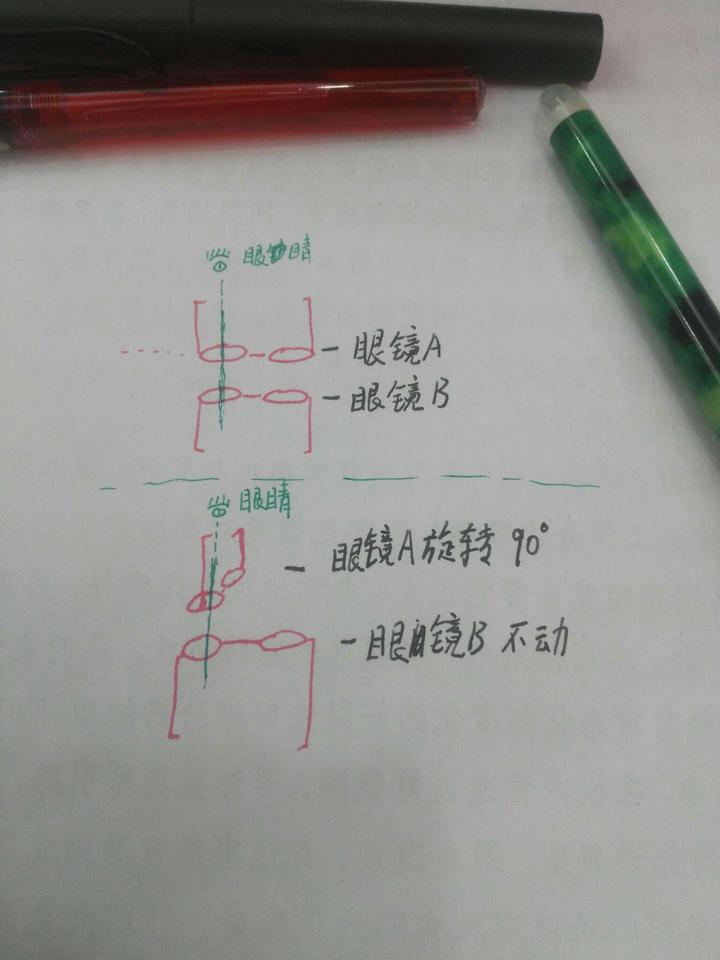 眼睛
眼镜A
眼镜B
眼睛
眼镜A旋转 90°
眼镜B 不动